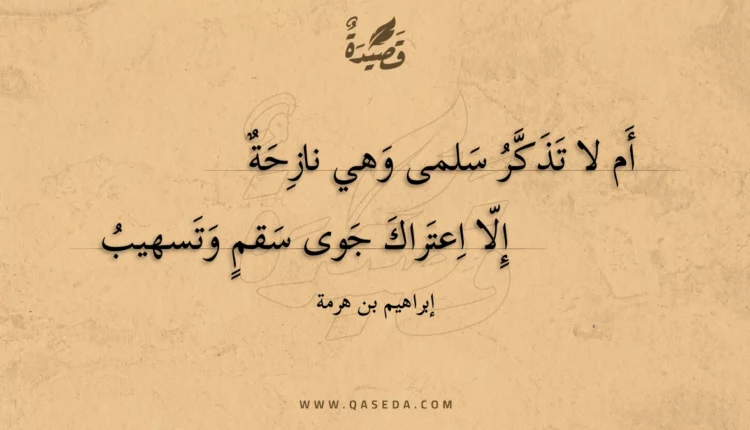 قَصِيْدَةٌ
أَم لا تَذَكَّرُ سَلمى وَهي نازِحَةٌ
إِلّا اِعتَراكَ جَوى سَقمٍ وَتَسهيبُ
إبراهيم بن هرمة
WWW.QASEDA.COM